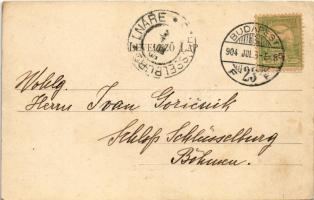 LEVELEZŐ-LAP
BUDAPEST
904 JUL.
25
Wohlg.
Herrn Ivan Goričnik
Schloß Schlüsselburg
Böhmen.